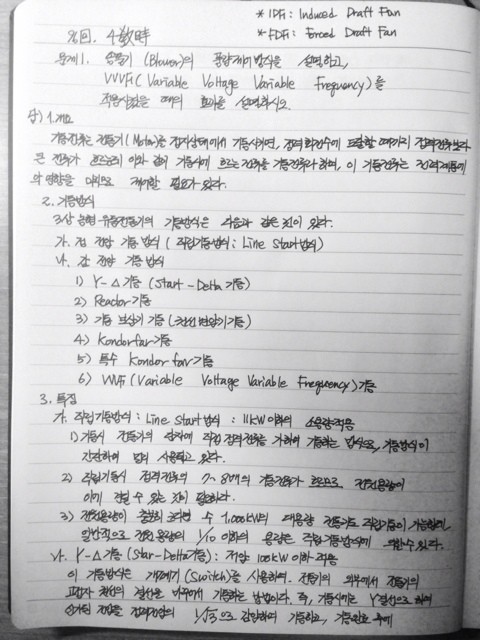 * IDFi : Induced Draft Fan
* FDFi : Forced Draft Fan
96回. 4교시
문제1. 송풍기 (Blower)의 풍량제어방식을 설명하고,
VVVFi (Variable Voltage Variable Frequency)를
적용시켰을 때의 효과를 설명하시오.
답) 1. 개요
기동전류는 전동기(Motor)를 정지상태에서 기동시키면, 정격회전수에 도달할 때까지 정격전류보다
큰 전류가 흐르는데 이와 같이 기동시에 흐르는 전류를 기동전류라 하며, 이 기동전류는 전력계통에
의 영향을 미치므로 제어할 필요가 있다.
2. 기동방식
3상 농형 유도전동기의 기동방식은 다음과 같은 것이 있다.
가. 전 전압 기동 방식 (직입기동방식 : Line Start 방식)
나. 감 전압 기동 방식
1) Y-Δ 기동 (Start-Delta 기동)
2) Reactor 기동
3) 기동 보상기 기동 (단권변압기 기동)
4) Kondorfar 기동
5) 특수 Kondorfar 기동
6) VVVFi (Variable Voltage Variable Frequency) 기동
3. 특징
가. 직입기동방식 : Line Start 방식 : 11kW 이하의 소용량 적용
1) 기동시 전동기의 단자에 직접 정격전류를 가하여 기동하는 방식으로, 기동방식이
간단하여 많이 사용되고 있다.
2) 직입기동시 정격전류의 7~8배의 기동전류가 흐르므로 전원용량이
이에 견딜 수 있는 것이 필요하다.
3) 전원용량이 충분히 크다면 수 1,000kW의 대용량 전동기도 직입기동이 가능하며,
일반적으로 전원용량의 1/10 이하의 용량은 직입기동방식에 의할 수 있다.
나. Y-Δ 기동 (Star-Delta 기동) : 저압 100kW 이하 적용
이 기동방식은 개폐기(Switch)를 사용하여 전동기의 외부에서 전동기의
고정자 권선의 결선을 바꾸어 기동하는 방법이다. 즉, 기동시에는 Y결선으로 하여
인가된 전압을 정격전압의 1/√3으로 감압하여 기동하고, 기동완료 후에